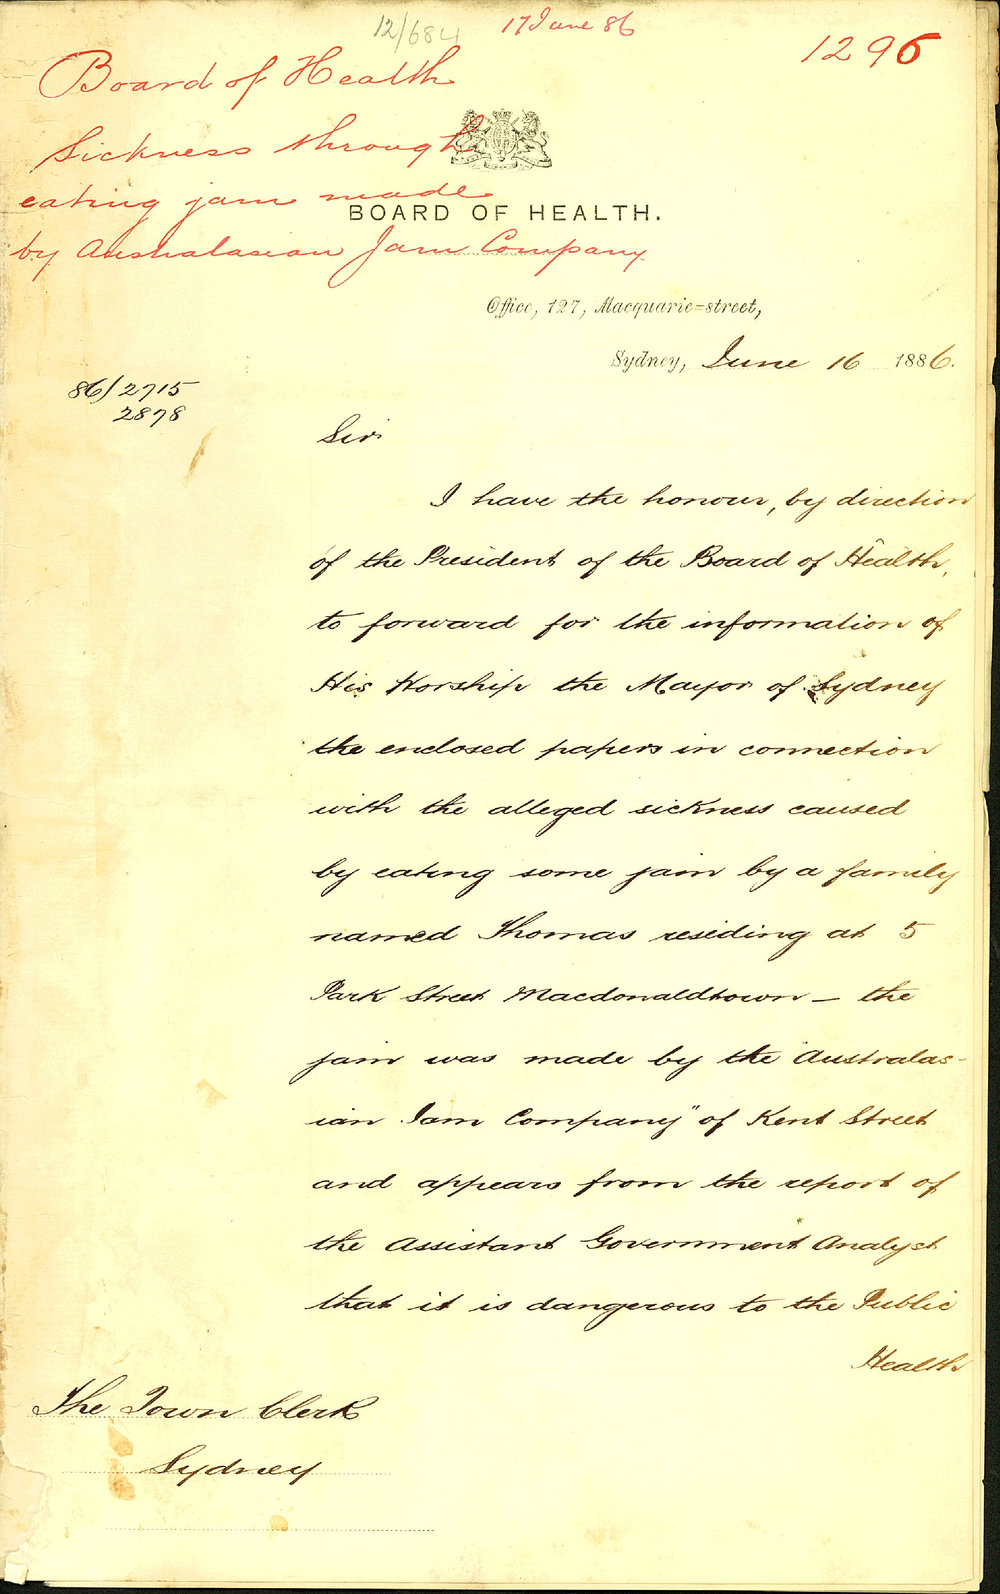 12/684
17 June 86
1296
Board of Health
Sickness through
eating jam made
by Australasian Jam Company
BOARD OF HEALTH.
Office, 127, Macquarie=street,
Sydney, June 16 1886.
86/2715
2878
Sir
I have the honour, by direction
of the President of the Board of Health,
to forward for the information of
His Worship the Mayor of Sydney
the enclosed papers in connection
with the alleged sickness caused
by eating some jam by a family
named Thomas residing at 5
Park Street Macdonaldtown – the
jam was made by the "Australas-
ian Jam Company" of Kent Street
and appears from the report of
the Assistant Government Analyst
that it is dangerous to the Public
Health
The Town Clerk
Sydney